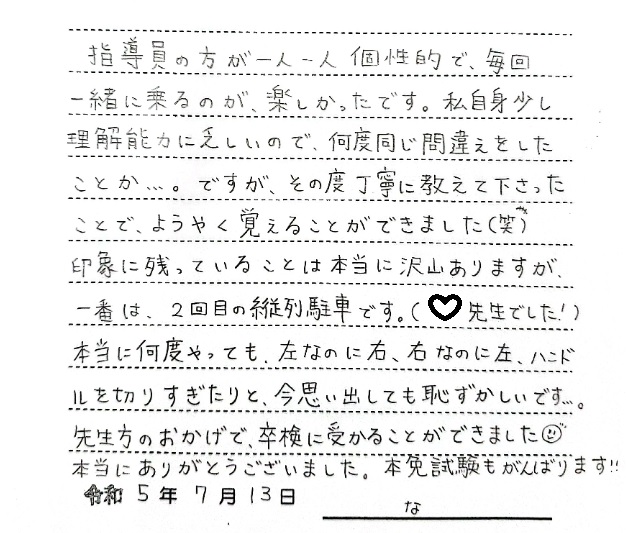 指導員の方が一人一人個性的で、毎回
一緒に乗るのが、楽しかったです。私自身少し
理解能力に乏しいので、何度同じ間違えをした
ことか…。ですが、その度丁寧に教えて下さった
ことで、ようやく覚えることができました(笑)
印象に残っていることは本当に沢山ありますが、
一番は、2回目の縦列駐車です。(♡先生でした!)
本当に何度やっても、左なのに右、右なのに左、ハンド
ルを切りすぎたりと、今思い出しても恥ずかしいです…。
先生方のおかげで、卒検に受かることができました☺
本当にありがとうございました。本免試験もがんばります!!
令和5年7月13日
な